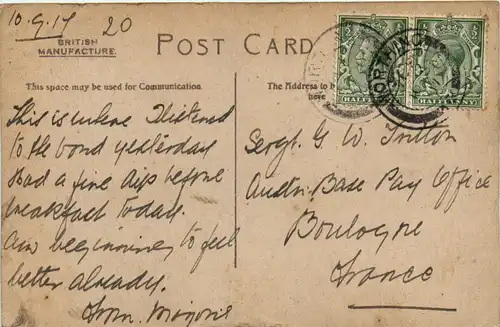 10.9.17 20
BRITISH
MANUFACTURE.
POST CARD
This space may be used for Communication.
The Address to b
here
HALFPENNY
HALFPENNY
This is where I listened
to the band yesterday
Had a fine dip before
breakfast today.
Am beginning to feel
better already.
from Marjorie
Sergt. G. W.
Austn. Base Pay Office
Boulogne
France